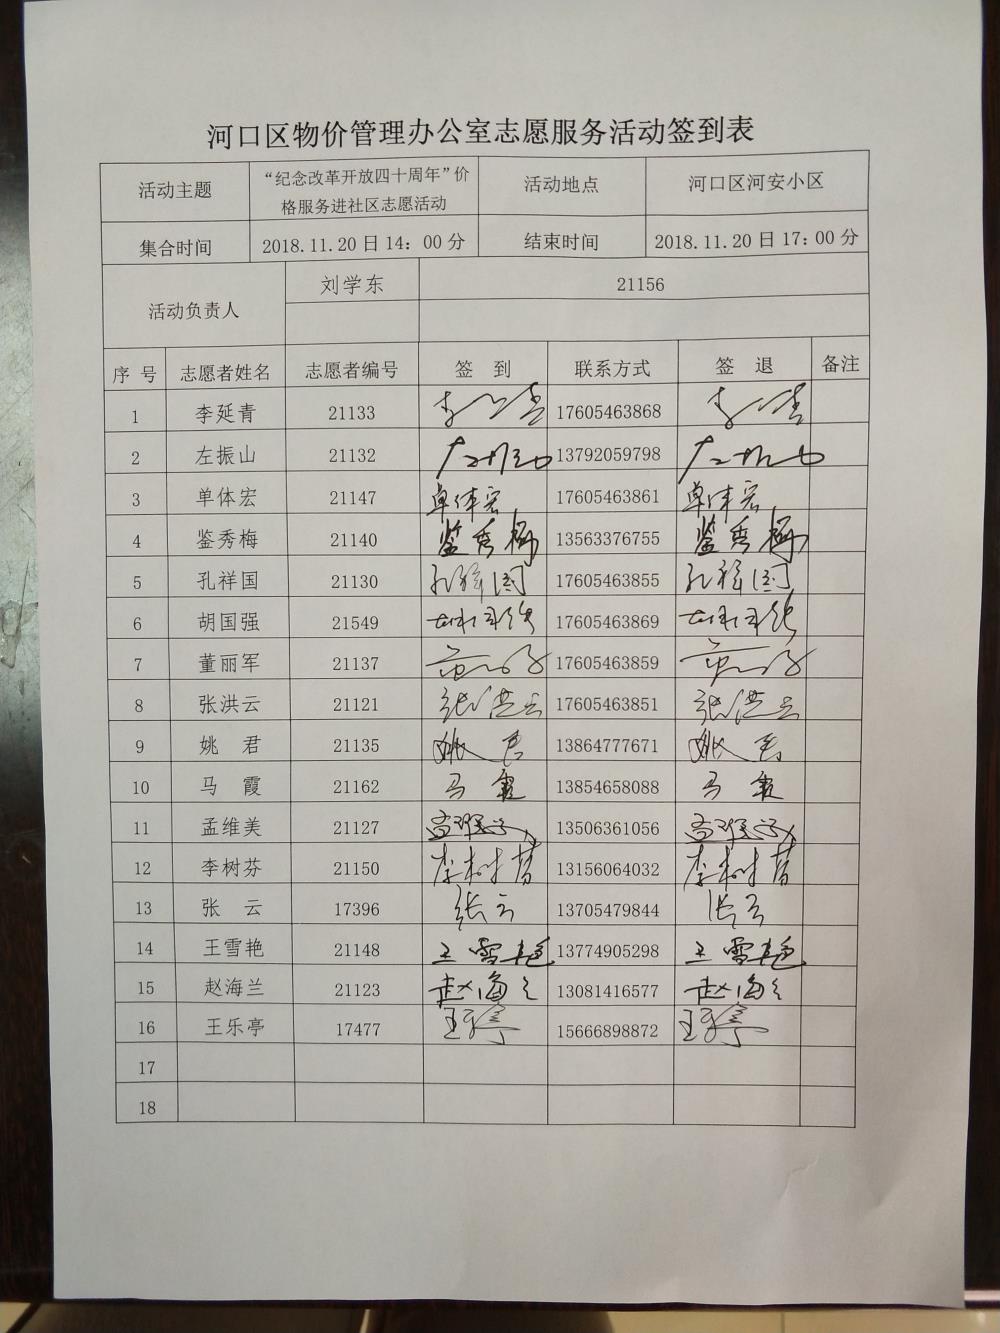 河口区物价管理办公室志愿服务活动签到表
活动主题 “纪念改革开放四十周年”价格服务进社区志愿活动 活动地点 河口区河安小区
集合时间 2018.11.20日14:00分 结束时间 2018.11.20日17:00分
活动负责人 刘学东 21156
序号 志愿者姓名 志愿者编号 签到 联系方式 签退 备注
1 李延青 21133 李延青 17605463868 李延青
2 左振山 21132 左振山 13792059798 左振山
3 单体宏 21147 单体宏 17605463861 单体宏
4 鉴秀梅 21140 鉴秀梅 13563376755 鉴秀梅
5 孔祥国 21130 孔祥国 17605463855 孔祥国
6 胡国强 21549 胡国强 17605463869 胡国强
7 董丽军 21137 17605463859
8 张洪云 21121 张洪云 17605463851 张洪云
9 姚君 21135 姚君 13864777671 姚君
10 马霞 21162 马霞 13854658088 马霞
11 孟维美 21127 孟维美 13506361056 孟维美
12 李树芬 21150 李树芬 13156064032 李树芬
13 张云 17396 张云 13705479844 张云
14 王雪艳 21148 王雪艳 13774905298 王雪艳
15 赵海兰 21123 赵海兰 13081416577 赵海兰
16 王乐亭 17477 王乐亭 15666898872 王乐亭
17
18